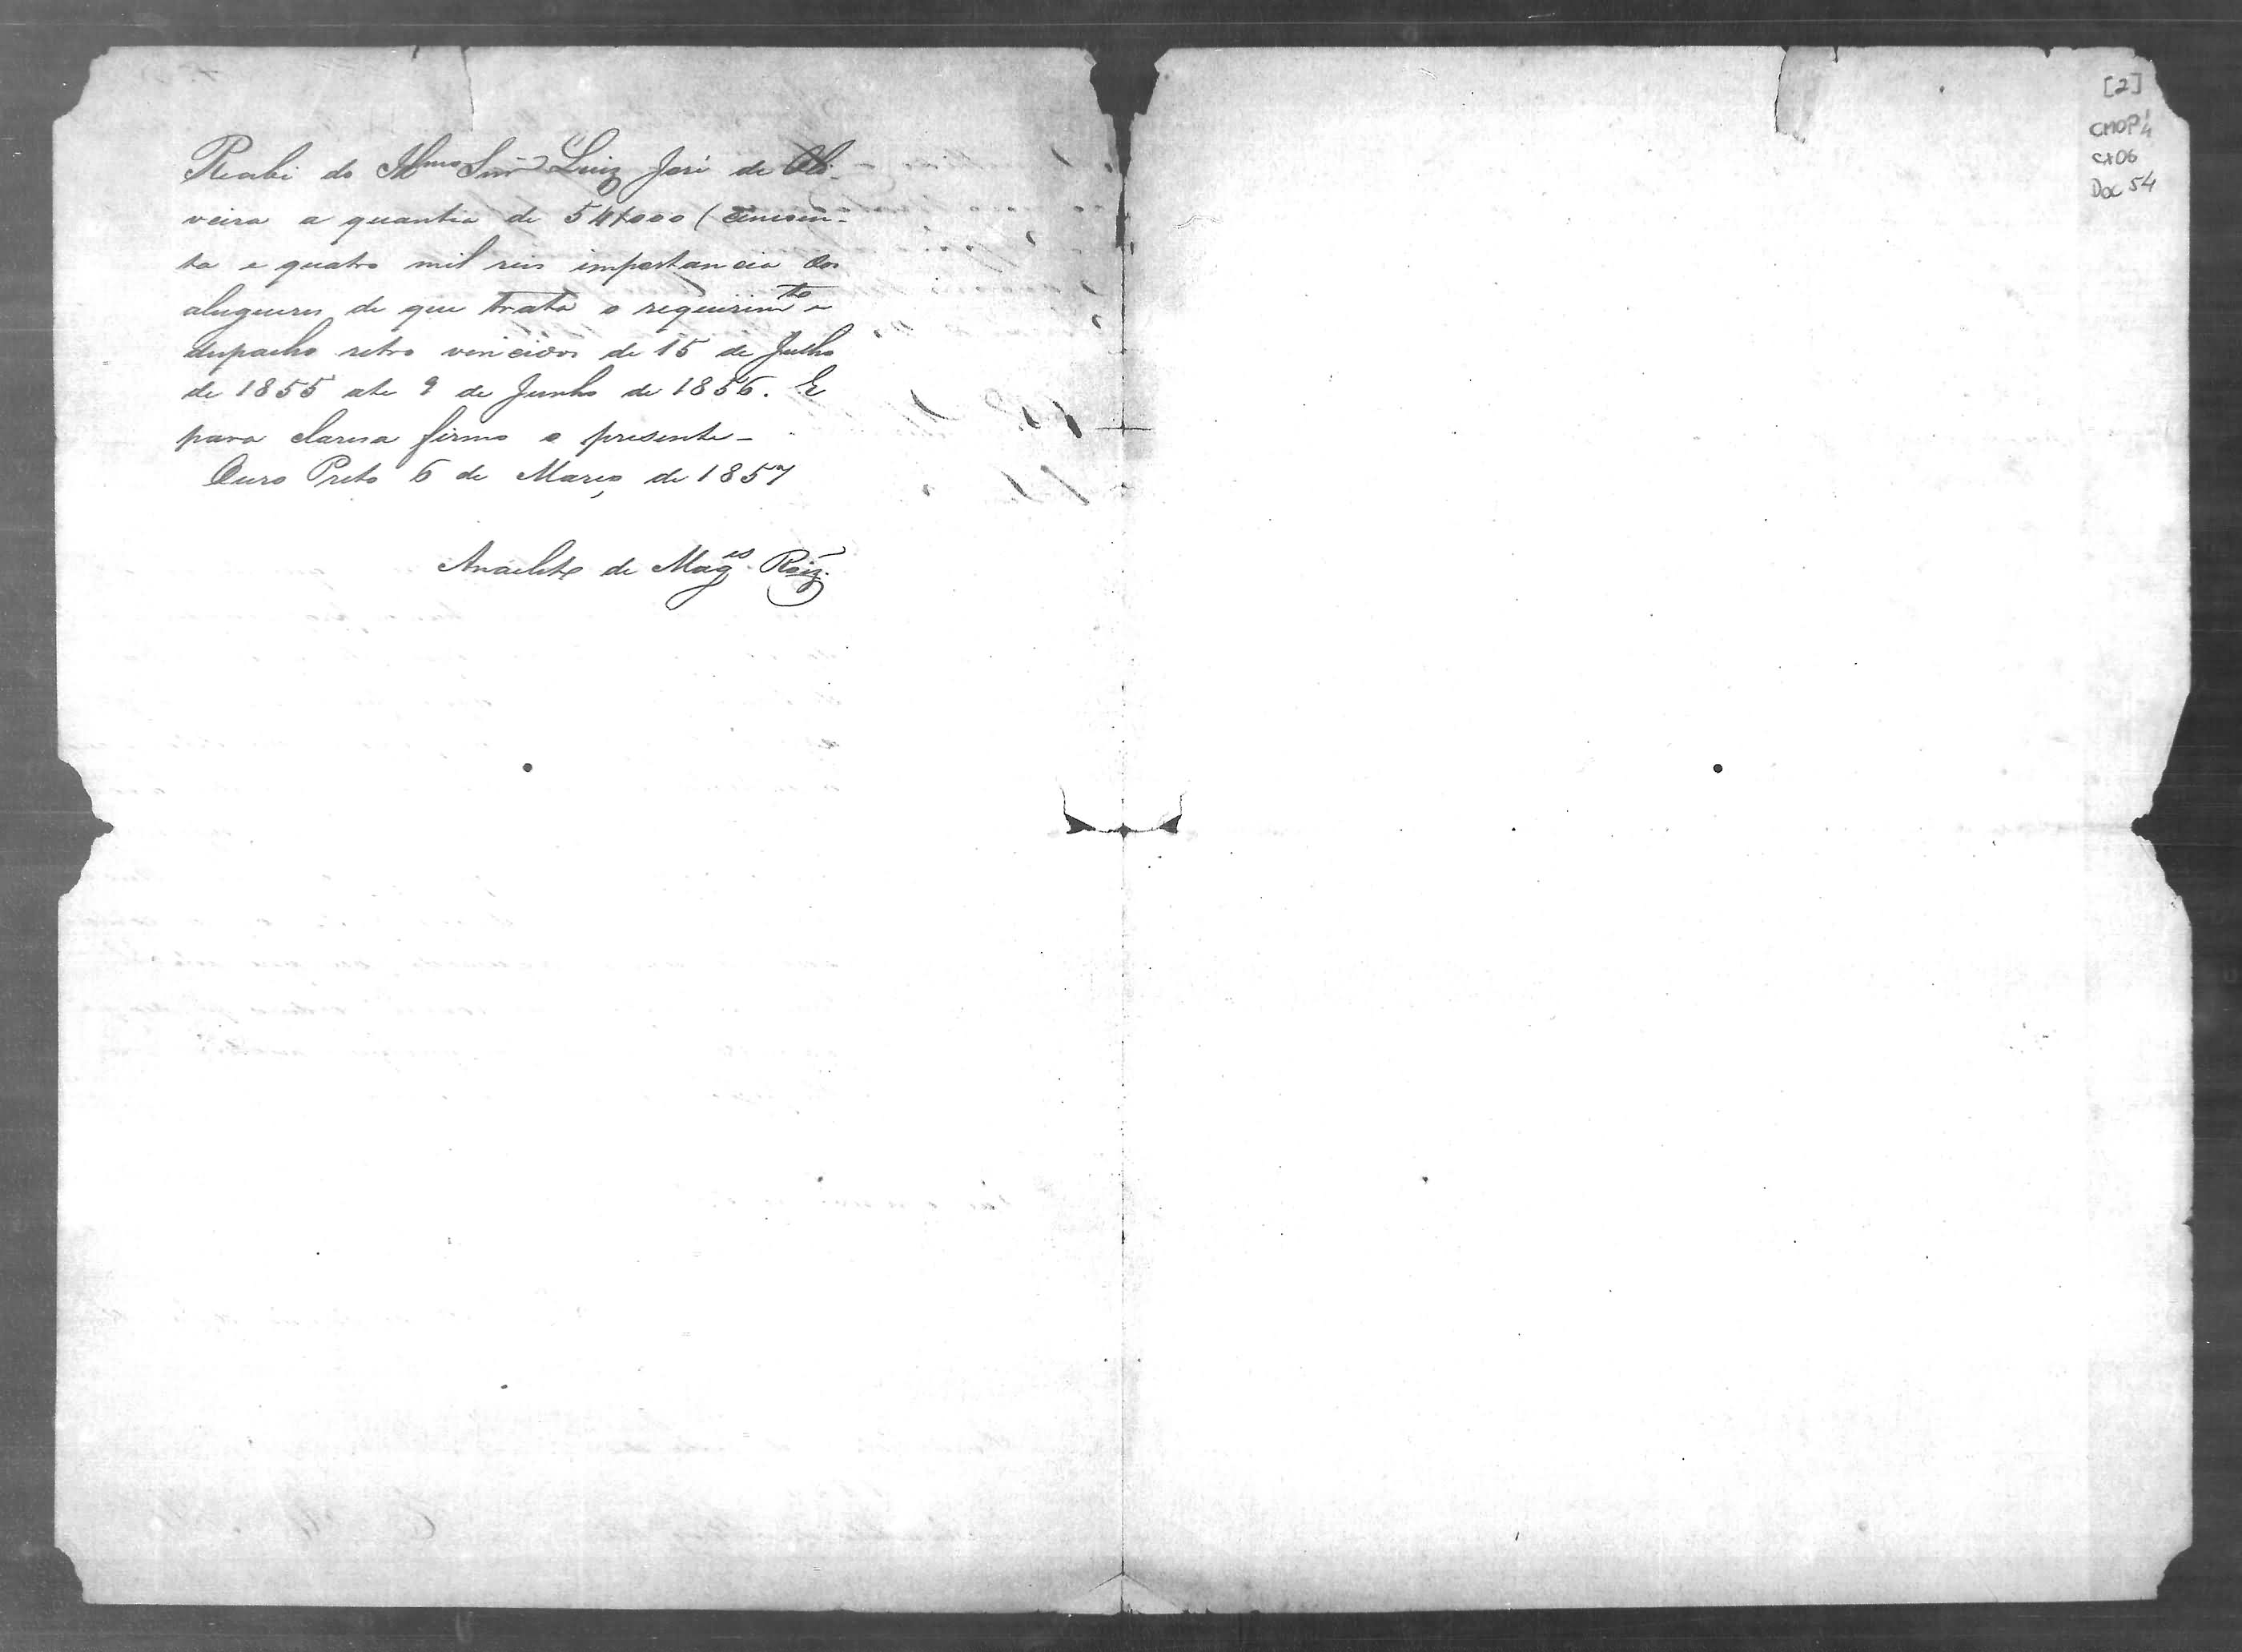 Recebi do Illmo Snr Luiz José de Oli-
veira a quantia de 54$000 (cincoen-
ta e quatro mil reis importancia dos
alugueres de que trata o requerimto e
despacho retro vencidos de 15 de Julho
de 1855 ate 9 de Junho de 1856. E
para claresa firmo o presente-
Ouro Preto 6 de Março de 1857
Anacleto de Mages Roiz.
[2]
CMOP
CX06
Doc 54